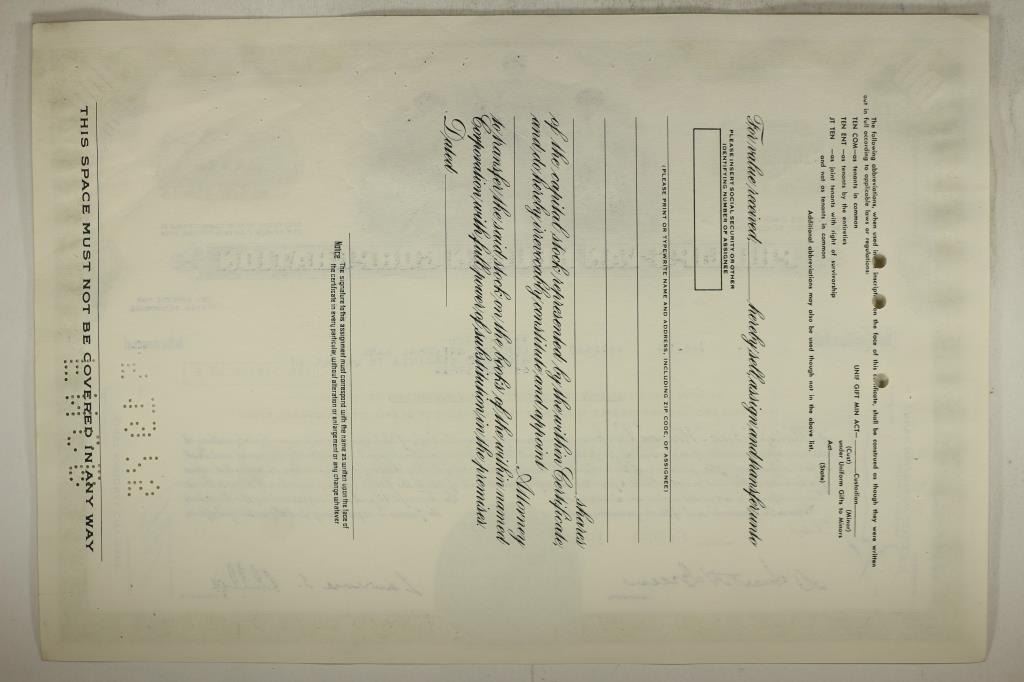 The following abbreviations, when used in the inscription on the face of this certificate, shall be construed as though they were written
out in full according to applicable laws or regulations:
TEN COM—as tenants in common
TEN ENT —as tenants by the entireties
JT TEN —as joint tenants with right of survivorship
and not as tenants in common
UNIF GIFT MIN ACT— Custodian
(Cust) (Minor)
under Uniform Gifts to Minors
Act
(State)
Additional abbreviations may also be used though not in the above list.
For value received, hereby sell, assign and transfer unto
PLEASE INSERT SOCIAL SECURITY OR OTHER
IDENTIFYING NUMBER OF ASSIGNEE
(PLEASE PRINT OR TYPEWRITE NAME AND ADDRESS, INCLUDING ZIP CODE, OF ASSIGNEE)
shares
of the capital stock represented by the within Certificate,
and do hereby irrevocably constitute and appoint
Attorney
to transfer the said stock on the books of the within named
Corporation with full power of substitution in the premises.
Dated
Notice: The signature to this assignment must correspond with the name as written upon the face of
the certificate in every particular, without alteration or enlargement or any change whatever
THIS SPACE MUST NOT BE COVERED IN ANY WAY